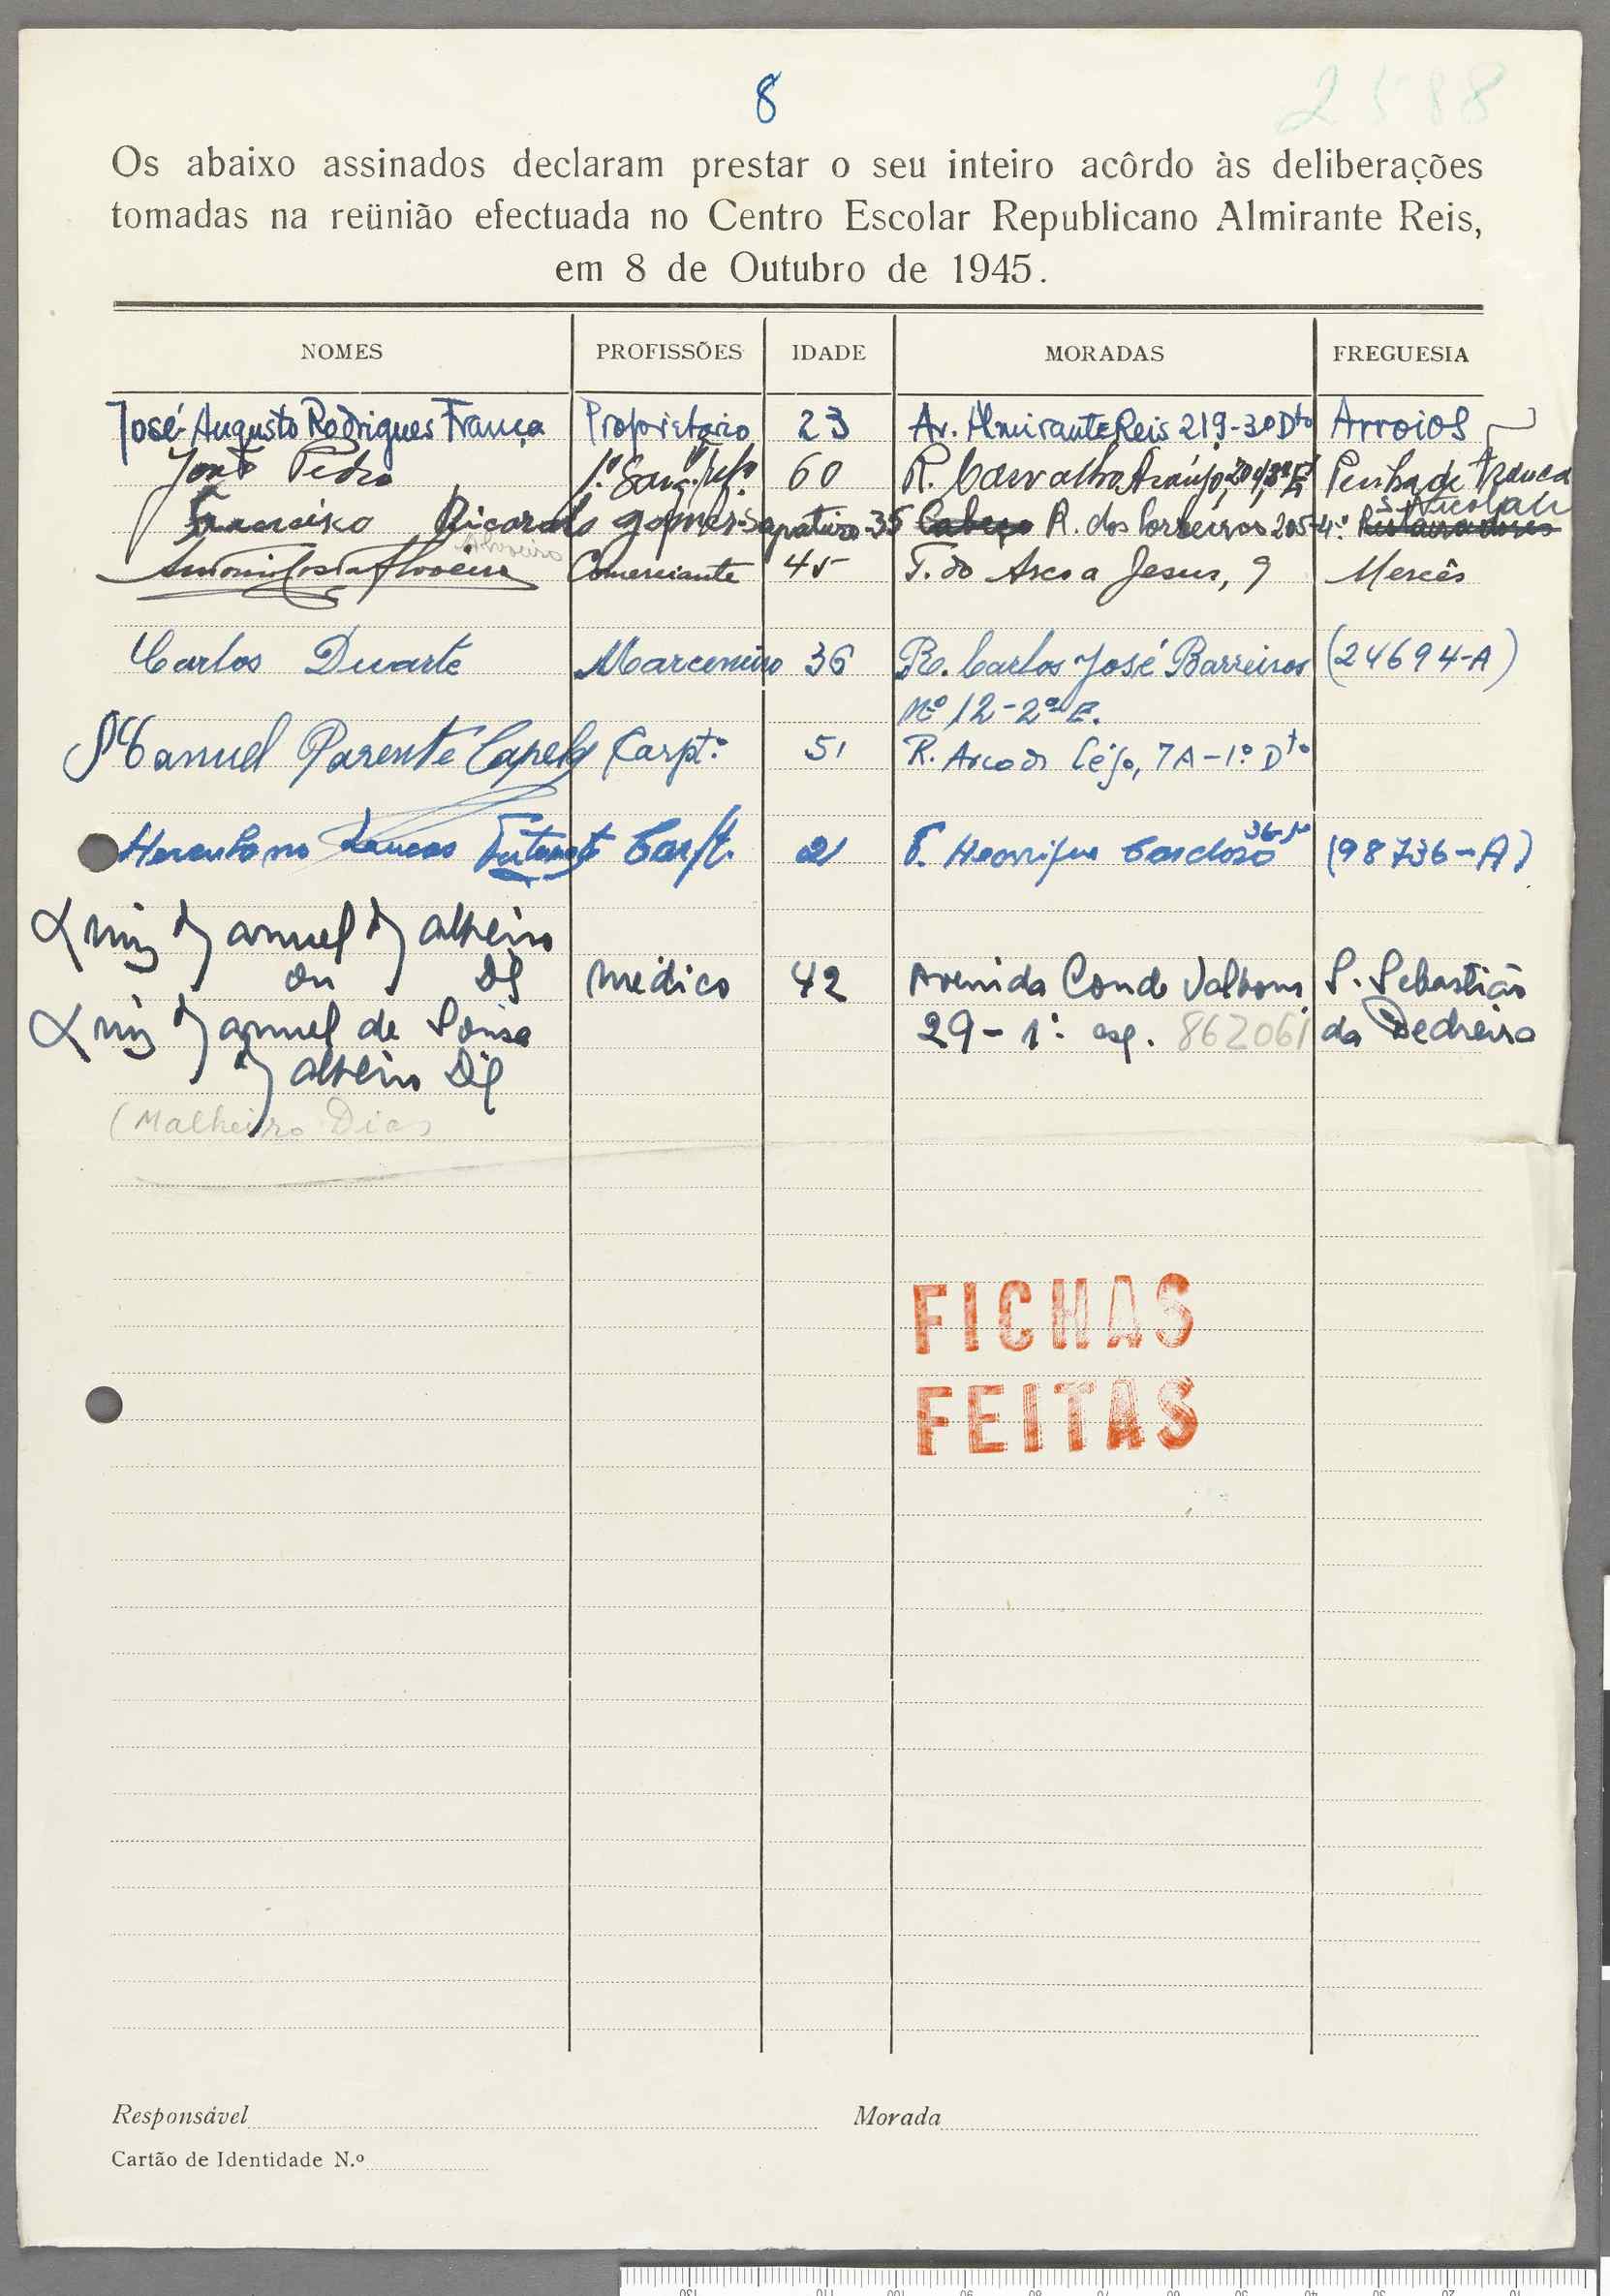 8
2588
Os abaixo assinados declaram prestar o seu inteiro acôrdo às deliberações
tomadas na reünião efectuada no Centro Escolar Republicano Almirante Reis,
em 8 de Outubro de 1945.
NOMES PROFISSÕES IDADE MORADAS FREGUESIA
José-Augusto Rodrigues França Proprietario 23 Av. Almirante Reis 219-3º Dto Arroios
João Pedro 60 R. Carvalho Araújo, Penha de França
S. Nicolau
Francisco Ricardo Gomes Sapateiro 35 R. dos Correeiros 205-4.º
António Costa Comerciante 45 T. do Arco a Jesus, 9 Mercês
Carlos Duarte Marceneiro 36 R. Carlos José Barreiros (24694-A)
Nº 12-2º E.
Manuel Parente Capela Carpt.º 51 R. Arco do Cego, 7A-1.º Dto
Herculano Carpt. 21 T. Henrique Cardoso (98736-A)
Luiz Manuel Malheiro
ou Dias médico 42 Avenida Conde Valbom, S. Sebastião
Luiz Manuel de Sousa 29-1.º esq. 862061 da Pedreira
Malheiro Dias
(Malheiro Dias)
FICHAS
FEITAS
Responsável Morada
Cartão de Identidade N.º